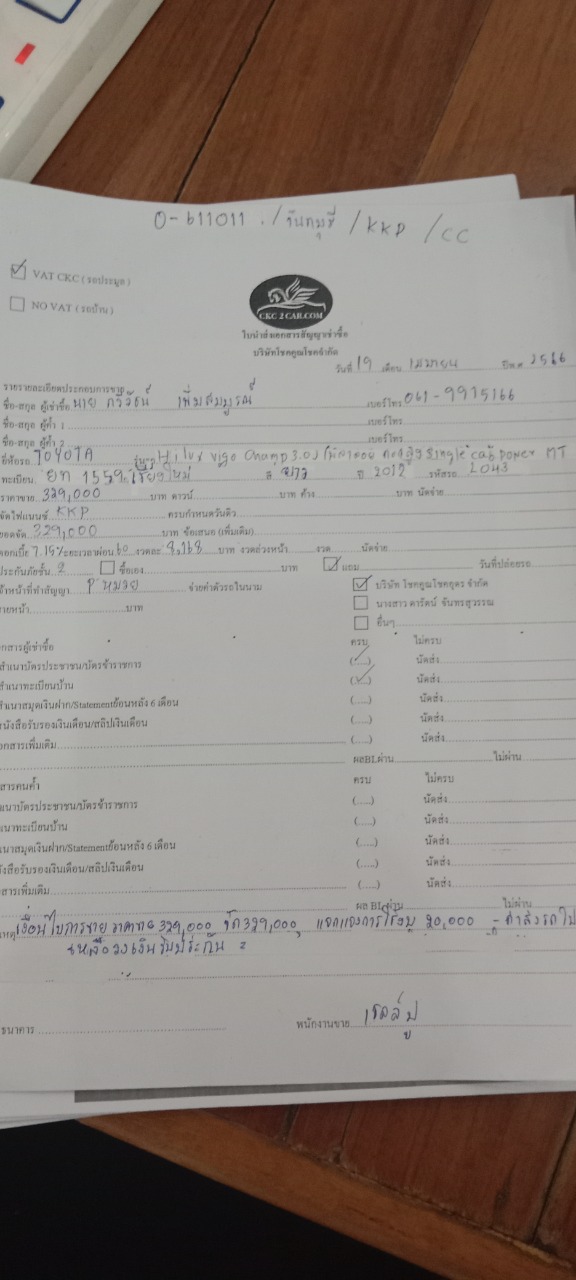 0-611011 ./วันกุมชี /KKP /CC
☑ VAT CKC ( รถประมูล )
☐ NO VAT ( รถบ้าน )
CKC 2 CAR.COM
ใบนำส่งเอกสารสัญญาเช่าซื้อ
บริษัทโชคคูณโชคจำกัด
วันที่ 19 เดือน เมษายน ปีพ.ศ 2566
รายละเอียดประกอบการขาย
ชื่อ-สกุล ผู้เช่าซื้อ นาย เพิ่มสมบูรณ์ เบอร์โทร 061-9915166
ชื่อ-สกุล ผู้ค้ำ 1 เบอร์โทร
ชื่อ-สกุล ผู้ค้ำ 2 เบอร์โทร
ยี่ห้อรถ TOYOTA รุ่นรถ Hilux vigo Champ 3.0J Single cab power MT
ทะเบียน ยท 1559 เชียงใหม่ สี ขาว ปี 2012 รหัสรถ 2043
ราคาขาย 329,000 บาท ดาวน์ บาท ค้าง บาท นัดจ่าย
จัดไฟแนนซ์ KKP ครบกำหนดวันคิว
ยอดจัด 329,000 บาท ข้อเสนอ (เพิ่มเติม)
ดอกเบี้ย 7.19% ระยะเวลาผ่อน 60 งวดละ บาท งวดล่วงหน้า งวด นัดจ่าย
ประกันภัยชั้น 2 ☐ ซื้อเอง บาท ☑ แถม วันที่ปล่อยรถ
เจ้าหน้าที่ทำสัญญา P'หมวย จ่ายค่าตัวรถในนาม ☑ บริษัท โชคคูณโชคยุตร จำกัด
นายหน้า บาท ☐ นางสาว ดารัตน์ จันทรสุวรรณ
☐ อื่นๆ
เอกสารผู้เช่าซื้อ ครบ ไม่ครบ
สำเนาบัตรประชาชน/บัตรข้าราชการ (✓) นัดส่ง
สำเนาทะเบียนบ้าน (✓) นัดส่ง
สำเนาสมุดเงินฝาก/Statementย้อนหลัง 6 เดือน (.....) นัดส่ง
หนังสือรับรองเงินเดือน/สลิปเงินเดือน (.....) นัดส่ง
เอกสารเพิ่มเติม (.....) นัดส่ง
ผลBLผ่าน ไม่ผ่าน
เอกสารคนค้ำ ครบ ไม่ครบ
สำเนาบัตรประชาชน/บัตรข้าราชการ (.....) นัดส่ง
สำเนาทะเบียนบ้าน (.....) นัดส่ง
สำเนาสมุดเงินฝาก/Statementย้อนหลัง 6 เดือน (.....) นัดส่ง
หนังสือรับรองเงินเดือน/สลิปเงินเดือน (.....) นัดส่ง
เอกสารเพิ่มเติม (.....) นัดส่ง
ผล BLผ่าน ไม่ผ่าน
เหตุ เงื่อนไขการขาย ราคาขาย 329,000 จัด 329,000 20,000 - ค่าส่งรถไป
ประกัน 2
ธนาคาร พนักงานขาย